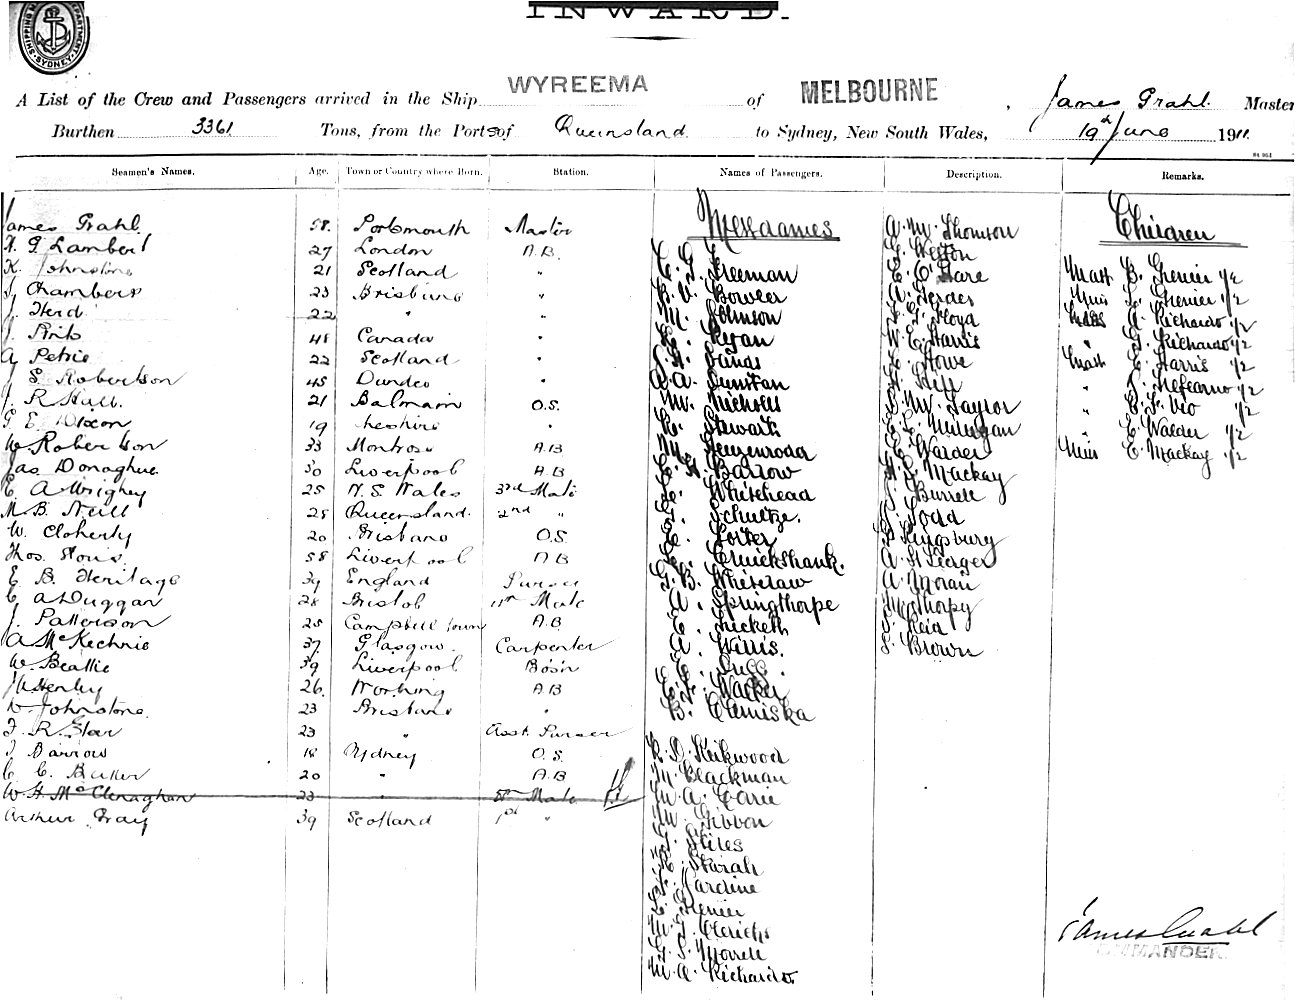 INWARD.
SHIPPING DEPARTMENT SYDNEY
A List of the Crew and Passengers arrived in the Ship WYREEMA of MELBOURNE, James Grahl Master
Burthen 3361 Tons, from the Ports of Queensland to Sydney, New South Wales, 19th June 1911
Seamen's Names. Age. Town or Country where Born. Station. Names of Passengers. Description. Remarks.
James Grahl 58 Portsmouth Master
G Lambert 27 London A.B.
K. Johnstone 21 Scotland "
J Chambers 23 Brisbane "
J. Herd 22 " "
J. Pink 48 Canada "
A Petrie 22 Scotland "
J S. Robertson 45 Dundee "
J. R Hall. 21 Balmain O.S.
G E Dixon 19 Cheshire "
W Robertson 33 Montrose A.B
Jas Donaghue 50 Liverpool A.B
C A Wrighey 25 N. S. Wales 3rd Mate
M B. Neill 28 Queensland. 2nd "
W. Cloherty 20 Brisbane O.S.
Thos. 58 Liverpool A B
E B. Heritage 39 England Purser
C A Duggan 28 Bristol Mate
J. Patterson 25 Campbelltown A.B.
A McKechnie 37 Glasgow. Carpenter
W. Beattie 39 Liverpool Bosn
Henley 26. Worthing A B
Johnstone. 23 Brisbane "
F. R. 23 " Asst. Purser
J Barrow 18 Sydney O. S.
C C. Butler 20 " A.B
W H McClenaghan 23 " Mate
Arthur Gray 39 Scotland 1st "
Messdames
C. G. Freeman
B. V. Bowler
M. Johnson
Regan
Sands
A. A. Duncan
M. Nicholls
Stewart
M. Heuzenroeder
C. H. Barrow
Whitehead
G. Schultze.
E. Porter
Cruickshank.
G. B. Whitelaw
A. Springthorpe
E. Ricketts
A. Willis.
C.
C. F. Walker
B. Clemiska
R. D. Kirkwood
M. Blackman
M. A. Carrie
M. Gibbon
G. Stiles
K. Sharah
Jardine
E. Grenier
M. J. Clerichs
G. S. Morrell
M. A. Richards.
A. M. Thomson
C. Weston
E. C. Hare
A. Gerdes
L. G. Floyd
W. E. Harris
E. Howe
A.
S. M. Taylor
E. L. Mulligan
E. Walder
A. L. Mackay
Burrell
Todd
Kingsbury
A. St Leger
A. Moran
M. Thorpy
S. Reid
S. Brown
Children
Mast B. Grenier 1/2
Miss L. Grenier 1/2
A. Richards 1/2
" G. Richards 1/2
Mast E. Harris 1/2
" 1/2
" 1/2
" E. Walder 1/2
Miss E. Mackay 1/2
James Grahl
COMMANDER.